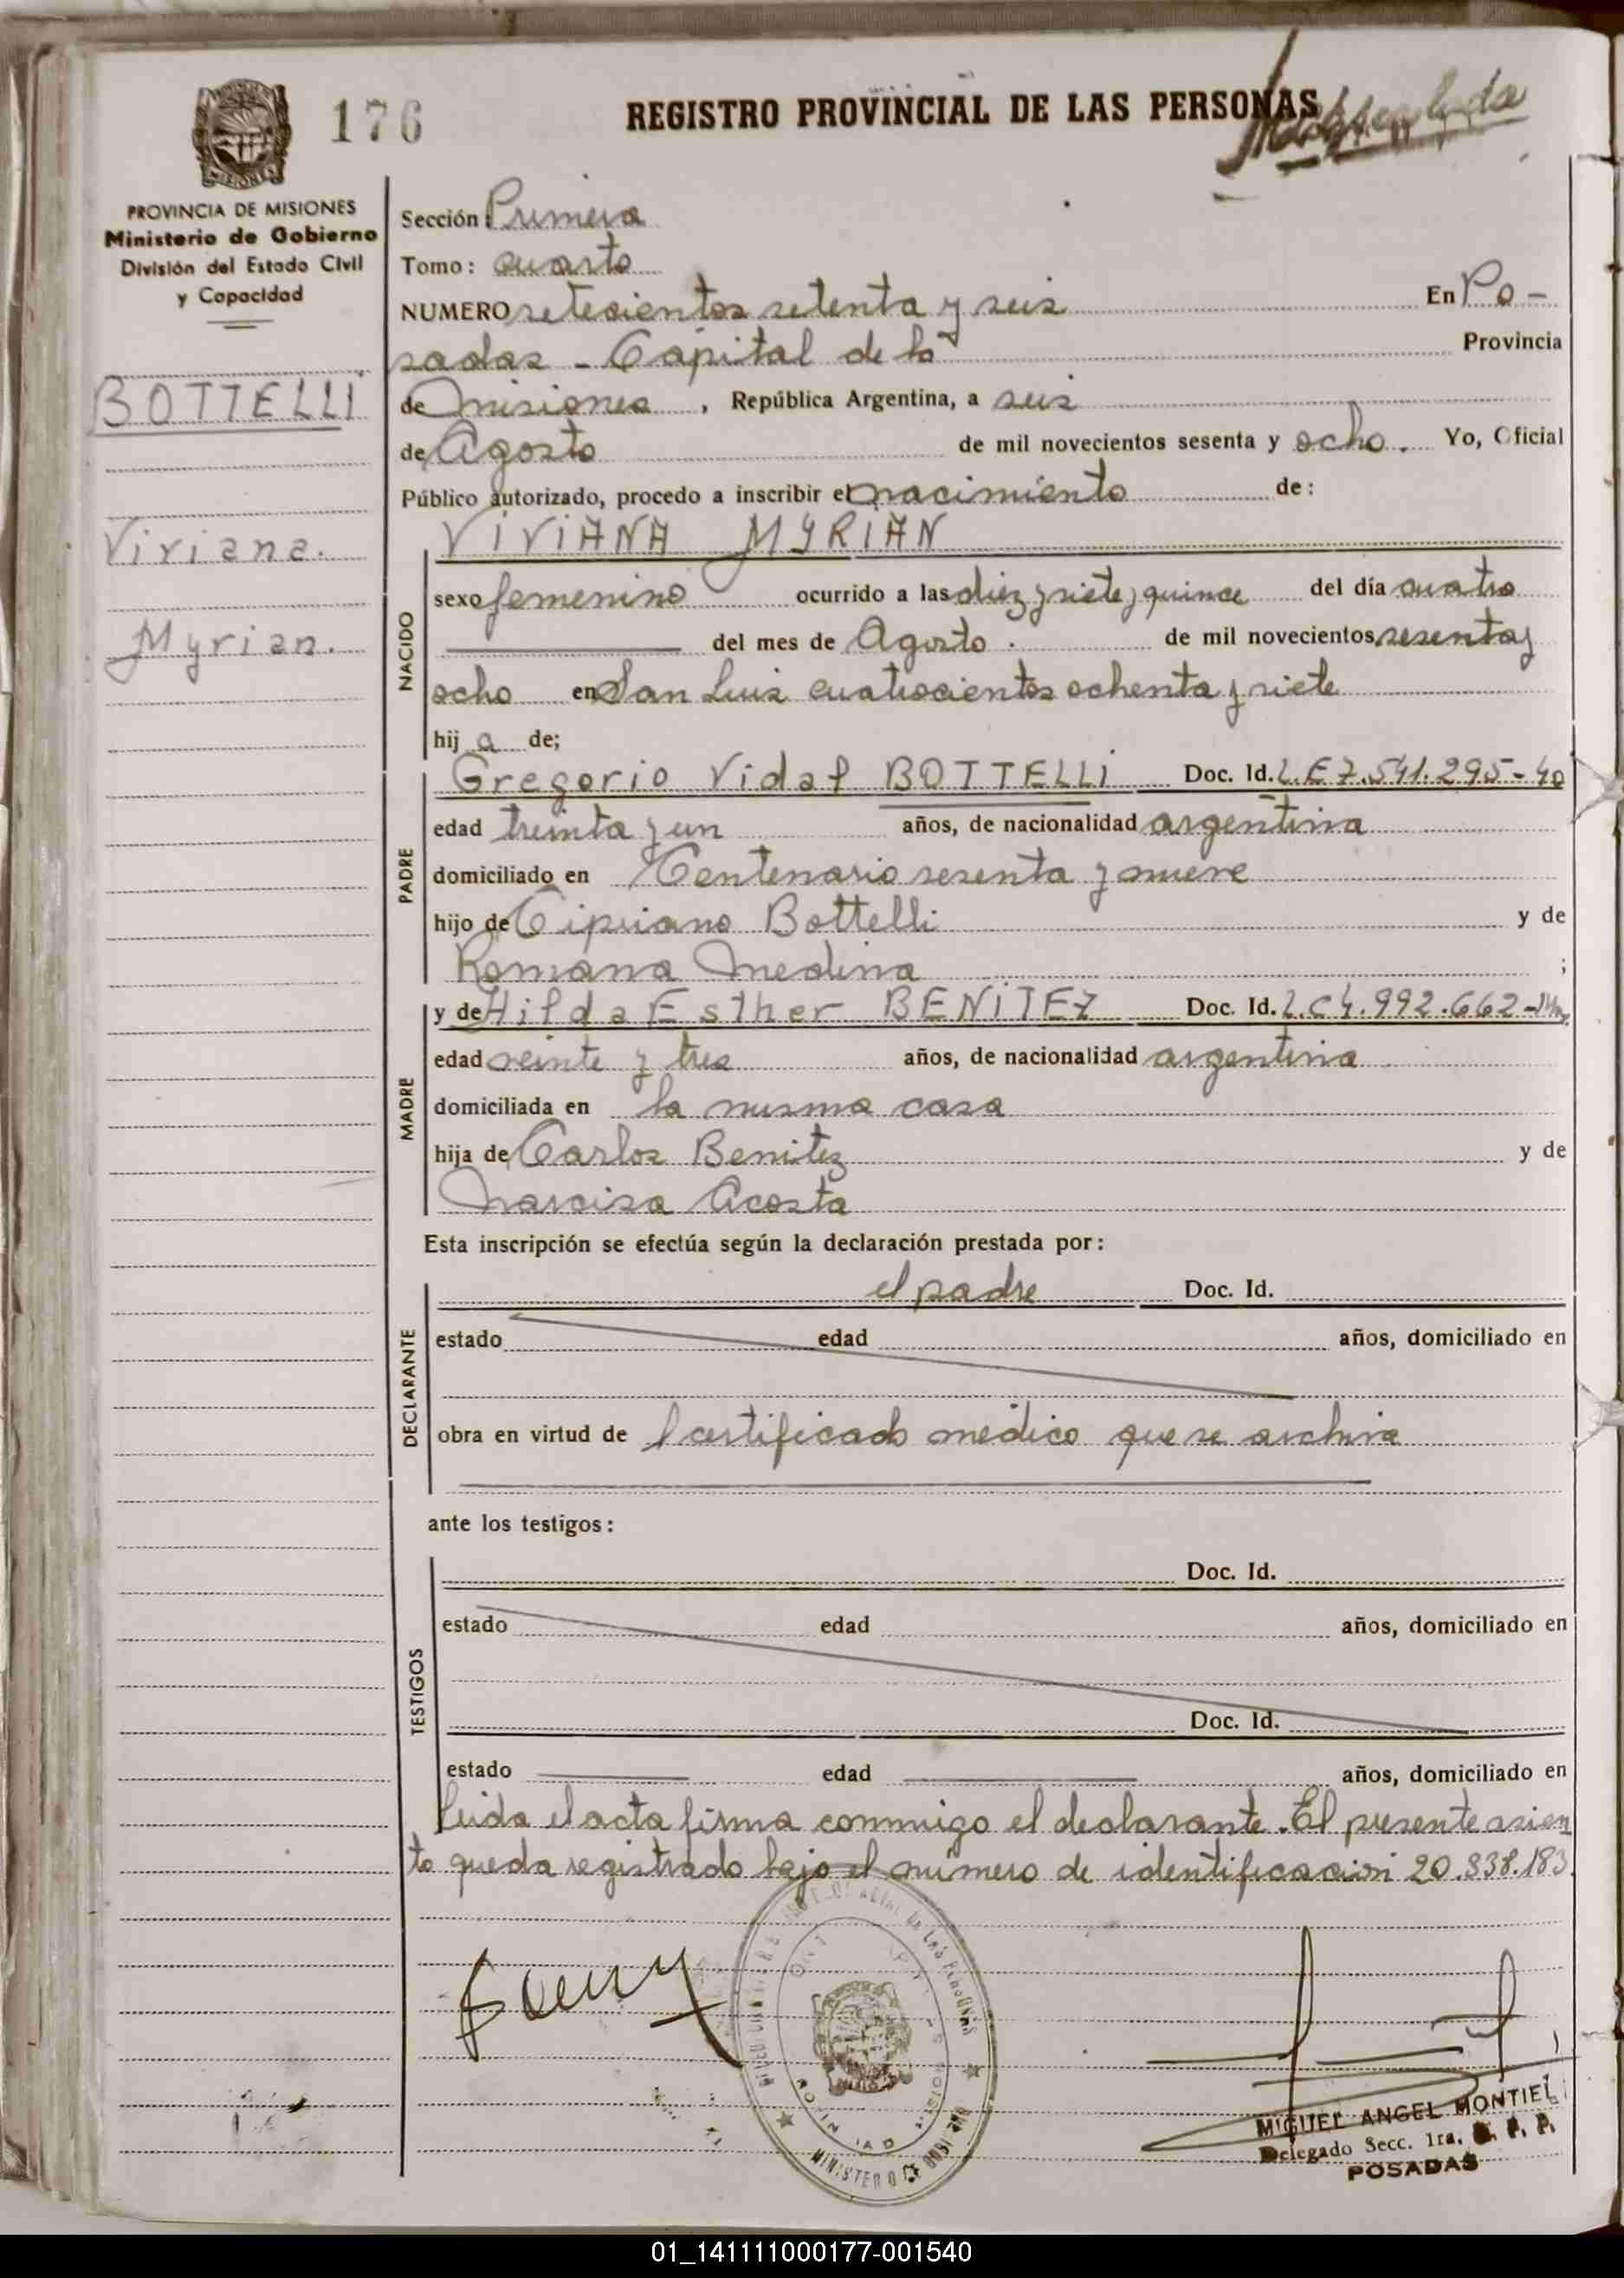 176
REGISTRO PROVINCIAL DE LAS PERSONAS
MISIONES
PROVINCIA DE MISIONES
Ministerio de Gobierno
División del Estado Civil
y Capacidad
BOTTELLI
Viviana.
Myrian.
Sección: Primera
Tomo: cuarto
NUMERO setecientos setenta y seis En Po-
sadas - Capital de la Provincia
de Misiones, República Argentina, a seis
de Agosto de mil novecientos sesenta y ocho. Yo, Oficial
Público autorizado, procedo a inscribir el nacimiento de:
VIVIANA MYRIAN
NACIDO
sexo femenino ocurrido a las diez y siete y quince del día cuatro
del mes de Agosto. de mil novecientos sesenta y
ocho en San Luis cuatrocientos ochenta y siete
hij a de;
PADRE
Gregorio Vidal BOTTELLI Doc. Id. L.E 7.541.295-40
edad treinta y un años, de nacionalidad argentina
domiciliado en Centenario sesenta y nueve
hijo de Cipriano Bottelli y de
Romana Medina ;
MADRE
y de Hilda Esther BENITEZ Doc. Id. L.C 4.992.662-
edad veinte y tres años, de nacionalidad argentina
domiciliada en la misma casa
hija de Carlos Benitez y de
Narcisa Acosta
Esta inscripción se efectúa según la declaración prestada por:
DECLARANTE
el padre Doc. Id.
estado edad años, domiciliado en
obra en virtud de l certificado médico que se archiva
ante los testigos:
TESTIGOS
Doc. Id.
estado edad años, domiciliado en
Doc. Id.
estado edad años, domiciliado en
Leida el acta firma conmigo el declarante. El presente asien
to queda registrado bajo el número de identificación 20.338.183.
MIGUEL ANGEL MONTIEL
Delegado Secc. 1ra. R. P. P.
POSADAS
01_141111000177-001540